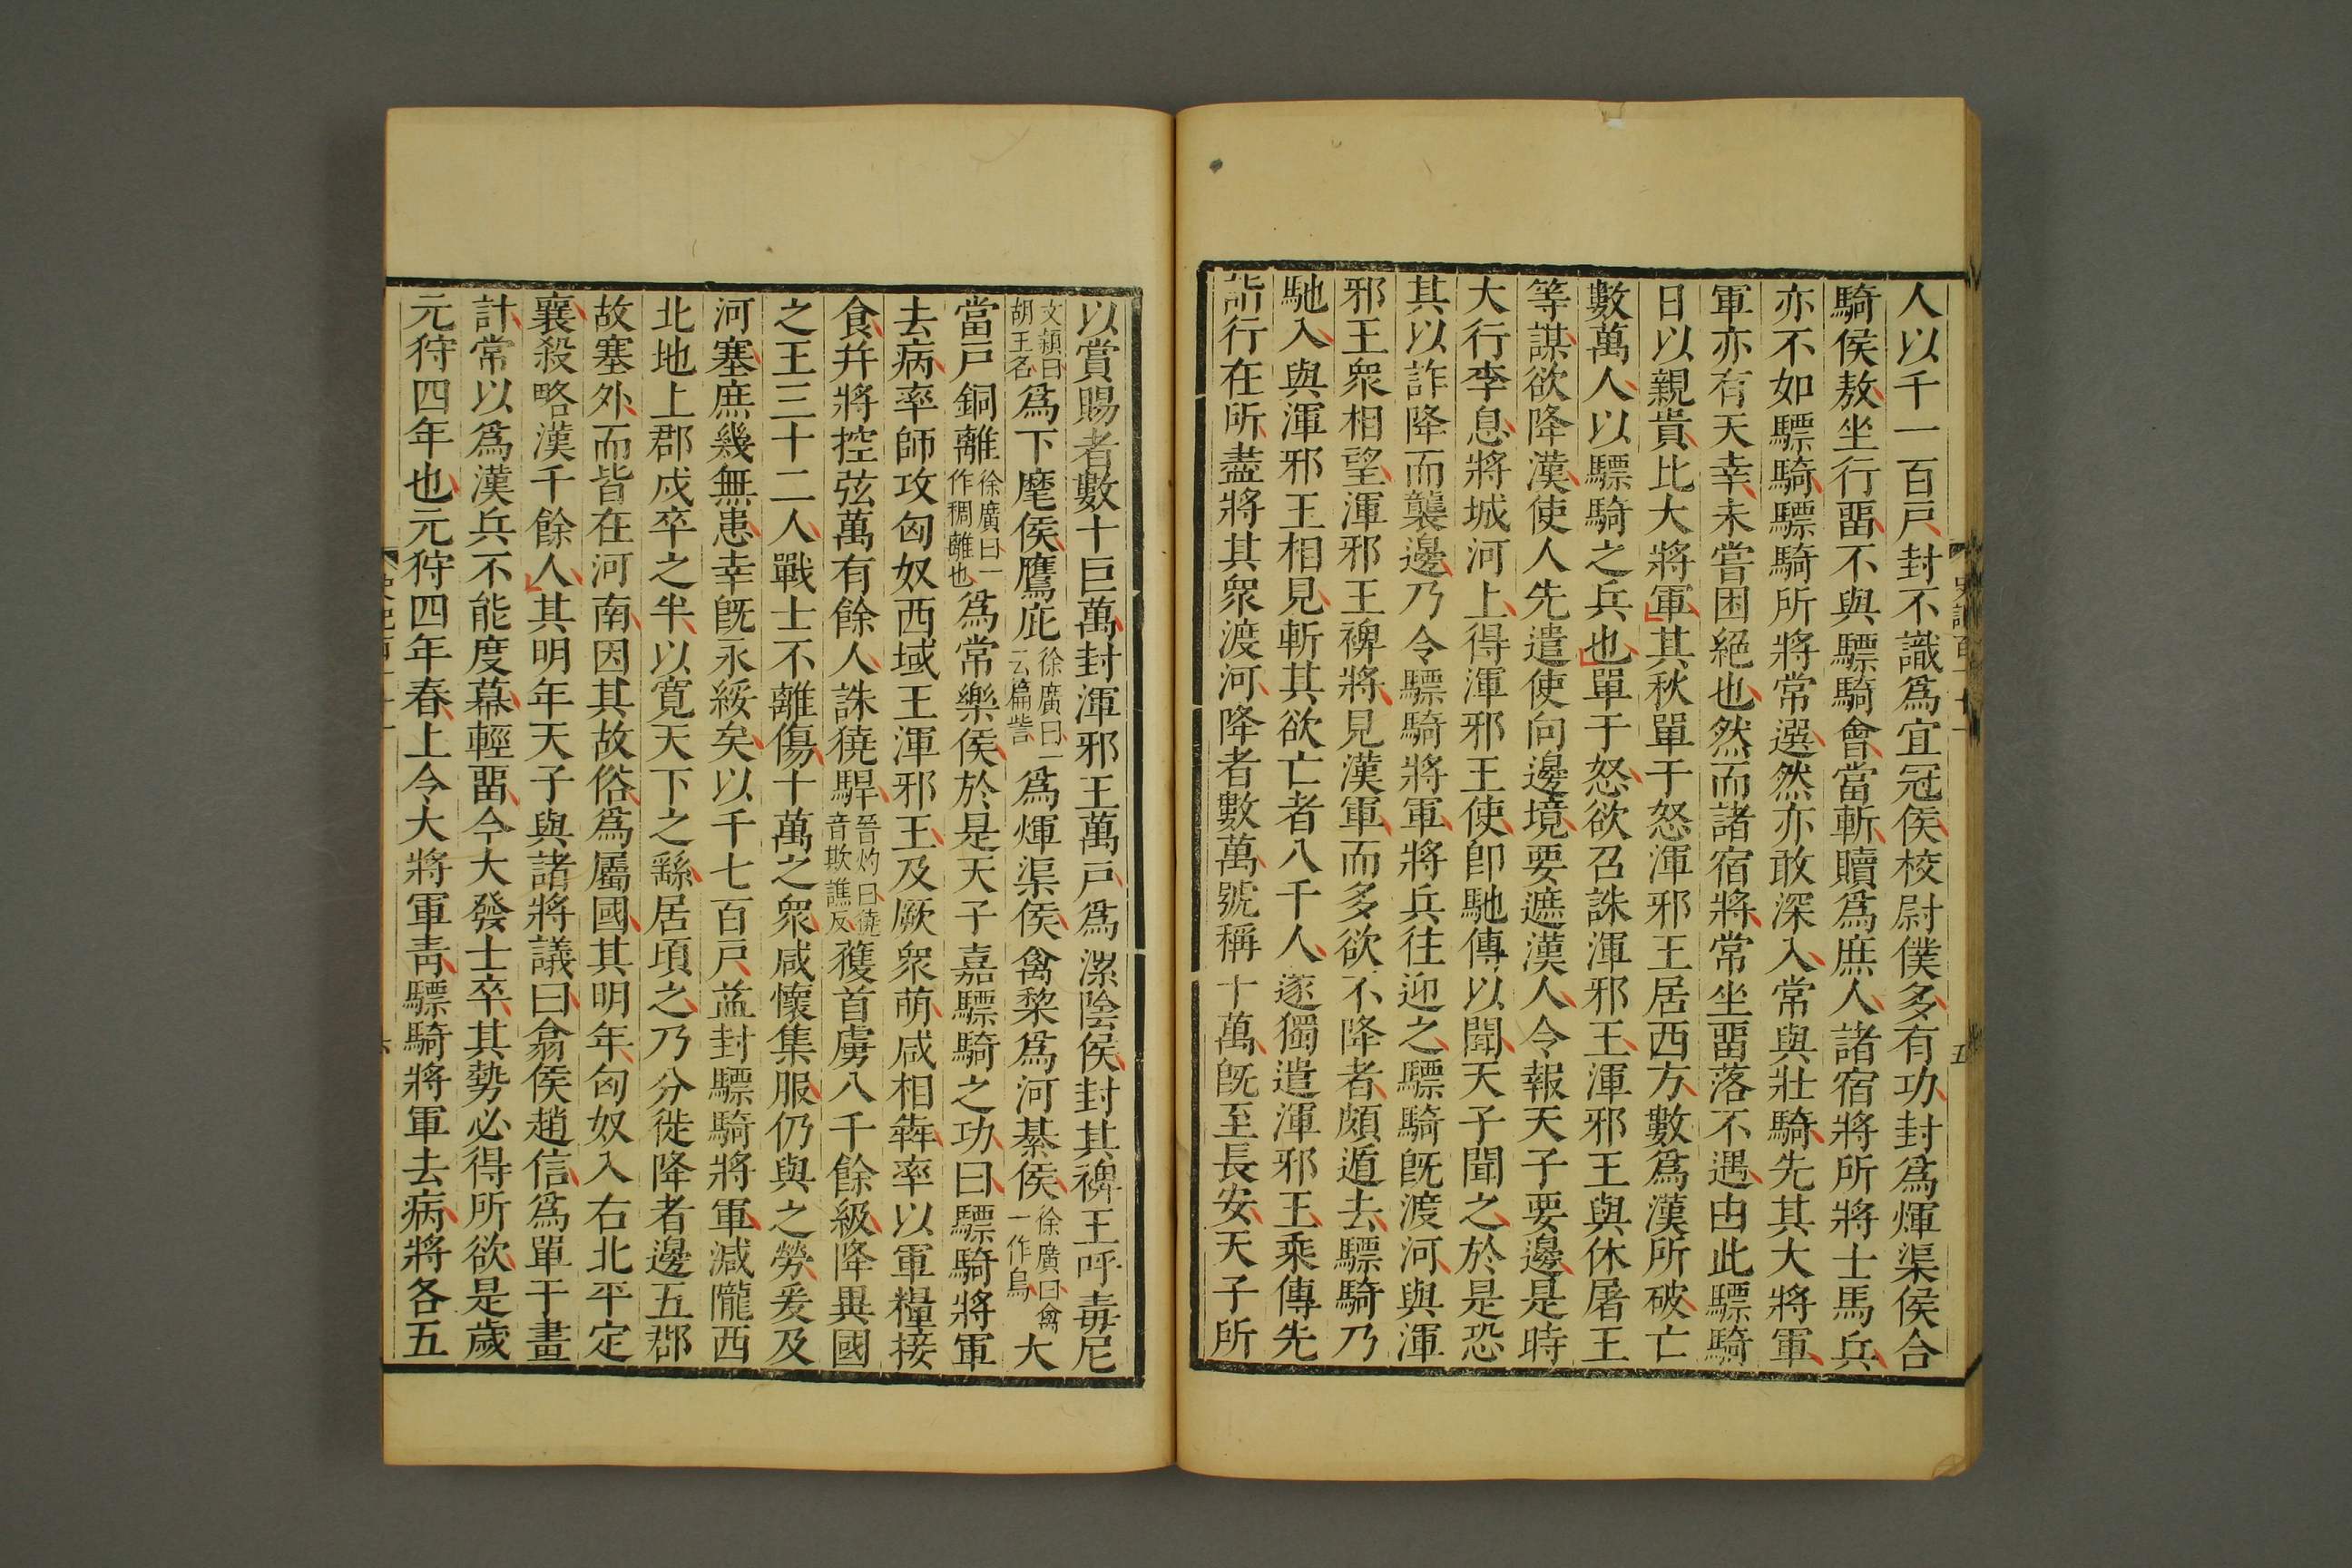 人以千一百戸封不識爲宜冠侯校尉僕多有功封爲煇渠侯合
騎侯敖坐行畱不與驃騎會當斬贖爲庶人諸宿將所將士馬兵
亦不如驃騎驃騎所將常選然亦敢深入常與壯騎先其大將軍
軍亦有天幸未嘗困絕也然而諸宿將常坐畱落不遇由此驃騎
日以親貴比大將軍其秋單于怒渾邪王居西方數爲漢所破亡
數萬人以驃騎之兵也單于怒欲召誅渾邪王渾邪王與休屠王
等謀欲降漢使人先遣使向邊境要遮漢人令報天子要邊是時
大行李息將城河上得渾邪王使卽馳傳以聞天子聞之於是恐
其以詐降而襲邊乃令驃騎將軍將兵往迎之驃騎旣渡河與渾
邪王衆相望渾邪王裨將見漢軍而多欲不降者頗遁去驃騎乃
馳入與渾邪王相見斬其欲亡者八千人遂獨遣渾邪王乘傳先
詣行在所盡將其衆渡河降者數萬號稱十萬旣至長安天子所
五
以賞賜者數十巨萬封渾邪王萬戸爲漯陰侯封其裨王呼毒尼
文穎曰胡王名爲下麾侯鷹庇徐廣曰一云篇訾爲煇渠侯禽黎爲河綦侯徐廣曰禽一作烏大
當戸銅離徐廣曰一作稠離也爲常樂侯於是天子嘉驃騎之功曰驃騎將軍
去病率師攻匈奴西域王渾邪王及厥衆萌咸相犇率以軍糧接
食并將控弦萬有餘人誅獟駻晉灼曰獟音欺譙反獲首虜八千餘級降異國
之王三十二人戰士不離傷十萬之衆咸懷集服仍與之勞爰及
河塞庶幾無患幸旣永綏矣以千七百戸益封驃騎將軍減隴西
北地上郡戍卒之半以寬天下之繇居頃之乃分徙降者邊五郡
故塞外而皆在河南因其故俗爲屬國其明年匈奴入右北平定
襄殺略漢千餘人其明年天子與諸將議曰翕侯趙信爲單于畫
計常以爲漢兵不能度幕輕畱今大發士卒其勢必得所欲是歲
元狩四年也元狩四年春上令大將軍靑驃騎將軍去病將各五